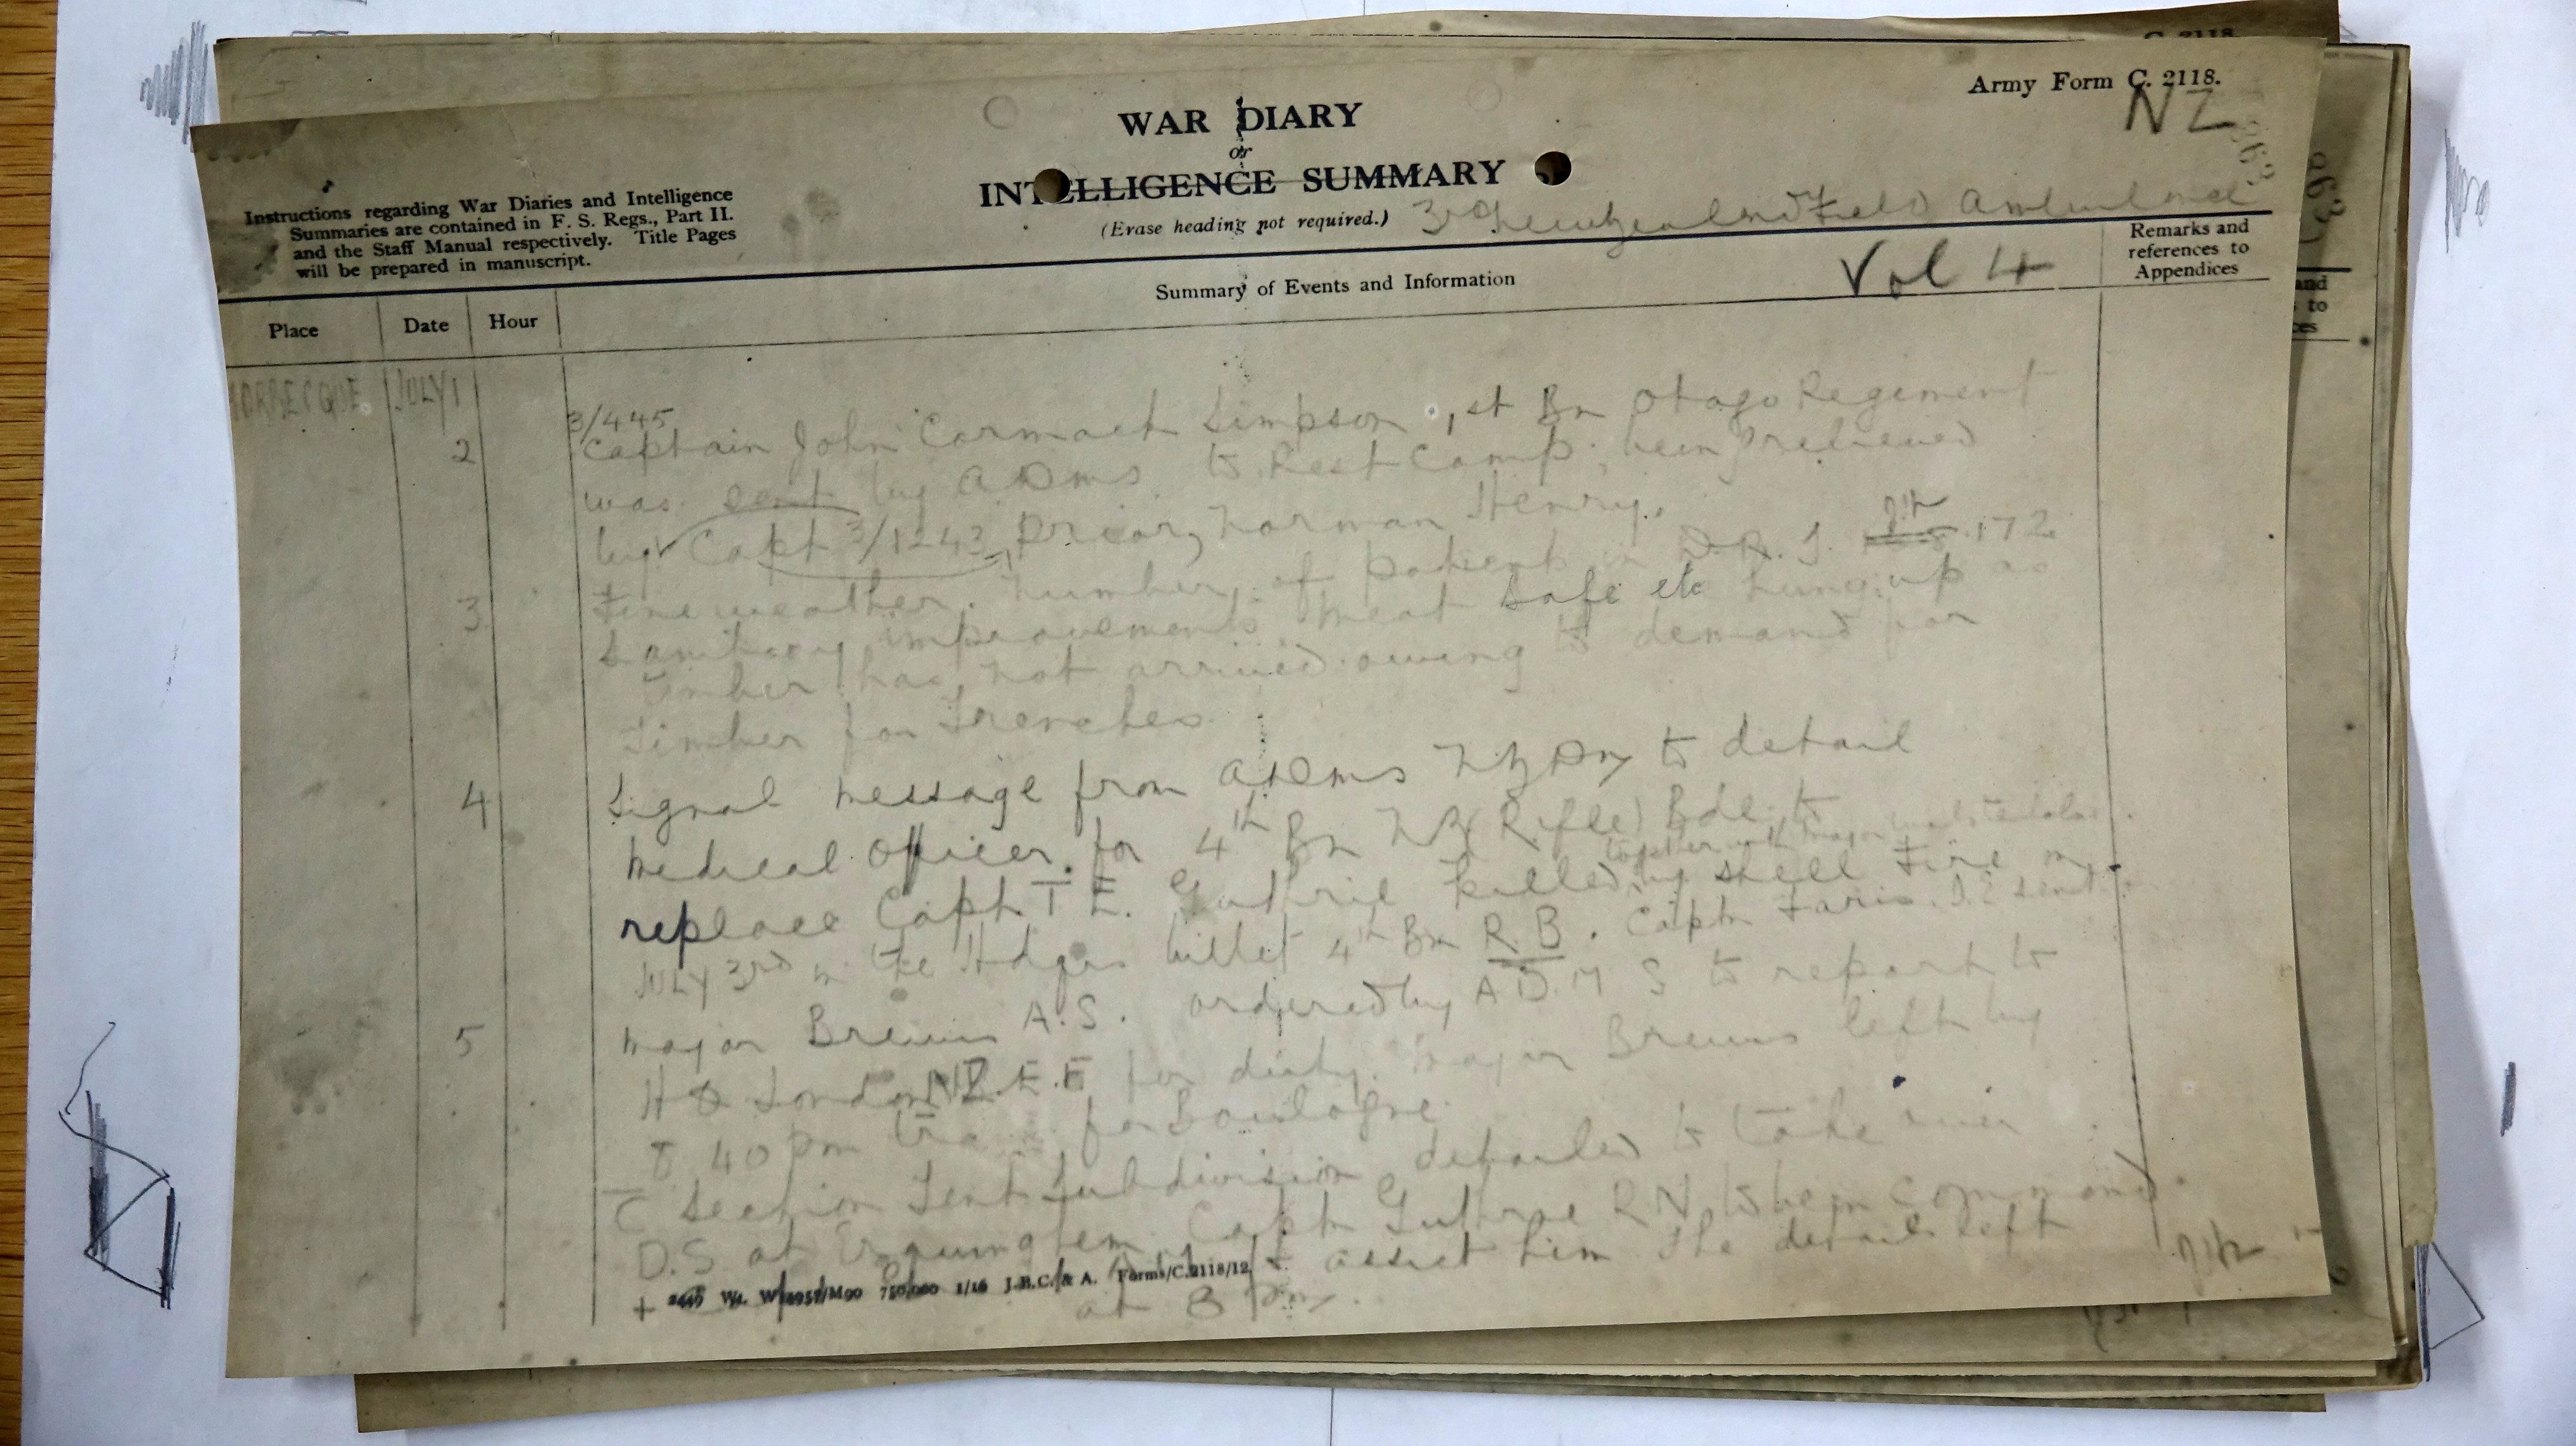 C. 2118
Army Form C. 2118.
NZ
WAR DIARY
or
INTELLIGENCE SUMMARY
(Erase heading not required.) 3rd New Zealand Field Ambulance
Instructions regarding War Diaries and Intelligence
Summaries are contained in F. S. Regs., Part II.
and the Staff Manual respectively. Title Pages
will be prepared in manuscript.
Place
Date
Hour
Summary of Events and Information
Vol 4
Remarks and
references to
Appendices
JULY 1
3/445
2 Captain John Cormack Simpson, 1st Bn Otago Regiment
was sent by ADMS to Rest Camp, being relieved
by Capt 3/1243 Prior, Norman Henry.
3 Fine weather. Number of patients in D.R.S. 172
Sanitary improvements, meat safe etc hung up as
timber has not arrived owing to demand for
timber for trenches.
4 Signal message from ADMS NZ Dn to detail
Medical Officer for 4th Bn NZ (Rifle) Bde to
together with Major
replace Capt T E. Guthrie killed by shell fire on
JULY 3rd in the billet 4th Bn R B. Capt Faris. I. E sent
5 Major A.S. ordered by A D. M S to report to
H Q London N.Z.E.F for duty. Major left by
8 40 pm train for Boulogne.
C Section Tent Subdivision detailed to take over
D.S at Erquinghem Capt Guthrie R N to be in command
+ assist him The detail left
+ at 8 pm.
Wt. 750,000 1/16 J.B.C. & A. Forms/C.2118/12